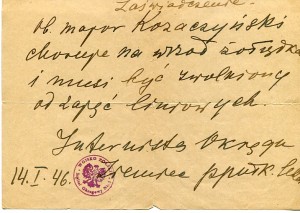 Zaświadczenie.
Ob. major Kozaczyński
choruje na wrzód żołądka
i musi być zwolniony
od zajęć liniowych.
Internista Okręgu
14.I.46. ppułk.
WOJSKO